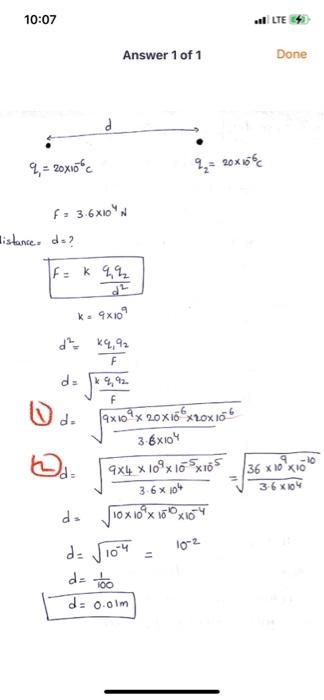 10:07 LTE
Answer 1 of 1 Done
d
q₁ = 20×10⁻⁶c q₂ = 20×10⁻⁶c
F = 3.6×10⁴ N
distance = d = ?
F = k q₁q₂/d²
k = 9×10⁹
d² = kq₁q₂/F
d = √(kq₁q₂/F)
① d = √(9×10⁹×20×10⁻⁶×20×10⁻⁶/3.6×10⁴)
② d = √(9×4×10⁹×10⁻⁵×10⁻⁵/3.6×10⁴) = √(36×10⁹×10⁻¹⁰/3.6×10⁴)
d = √(10×10⁹×10⁻¹⁰×10⁻⁴)
d = √10⁻⁴ = 10⁻²
d = 1/100
d = 0.01m